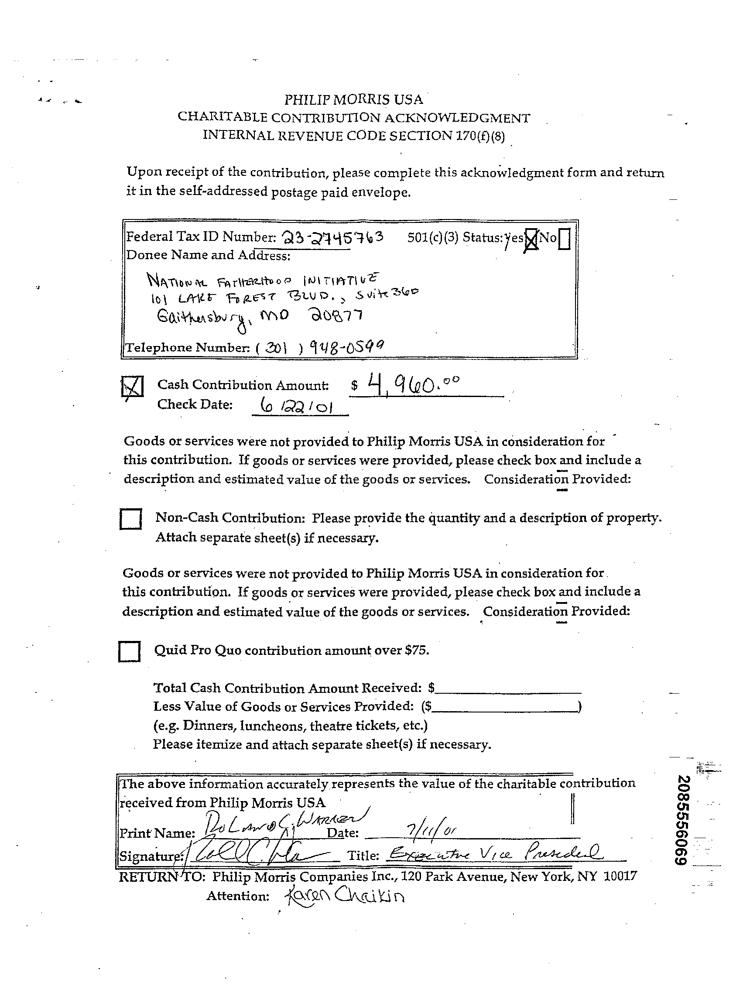 PHILIP MORRIS USA
CHARITABLE CONTRIBUTION ACKNOWLEDGMENT
INTERNAL REVENUE CODE SECTION 170(f)(8)
Upon receipt of the contribution, please complete this acknowledgment form and return
it in the self-addressed postage paid envelope.
Federal Tax ID Number: 23-2745763 501(c)(3) Status: Yes No
Donee Name and Address:
NATIONAL FATHERHOOD INITIATIVE
101 LAKE FOREST BLVD., Suite 360
Gaithersburg, MD 20877
Telephone Number: (301) 948-0599
Cash Contribution Amount: $ 4,960.00
Check Date: 6/22/01
Goods or services were not provided to Philip Morris USA in consideration for
this contribution. If goods or services were provided, please check box and include a
description and estimated value of the goods or services. Consideration Provided:
Non-Cash Contribution: Please provide the quantity and a description of property.
Attach separate sheet(s) if necessary.
Goods or services were not provided to Philip Morris USA in consideration for
this contribution. If goods or services were provided, please check box and include a
description and estimated value of the goods or services. Consideration Provided:
Quid Pro Quo contribution amount over $75.
Total Cash Contribution Amount Received: $
Less Value of Goods or Services Provided: ($ )
(e.g. Dinners, luncheons, theatre tickets, etc.)
Please itemize and attach separate sheet(s) if necessary.
The above information accurately represents the value of the charitable contribution
received from Philip Morris USA
Print Name: Roland C. Warren Date: 7/11/01
Signature: Title: Executive Vice President
RETURN TO: Philip Morris Companies Inc., 120 Park Avenue, New York, NY 10017
Attention: Karen Chaikin
2085556069